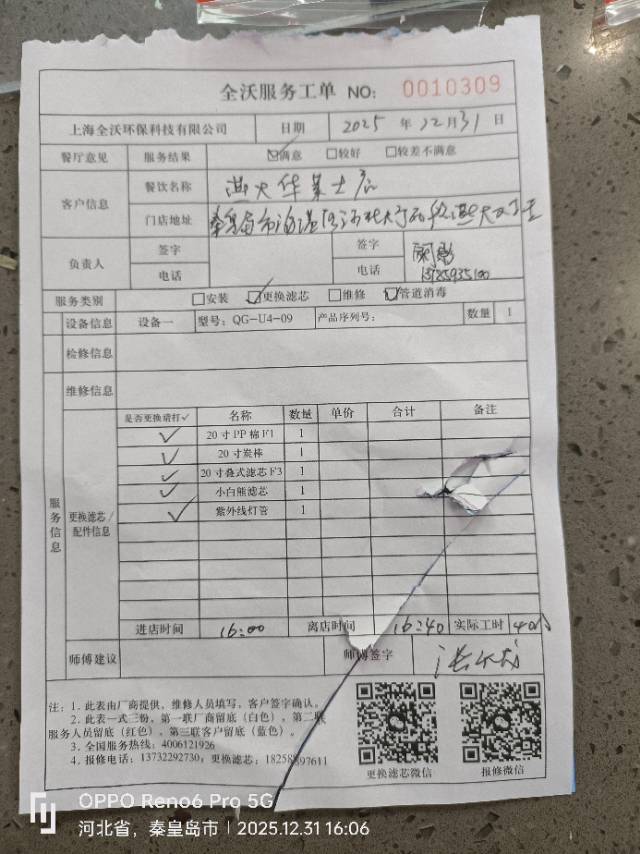 全沃服务工单 NO: 0010309
上海全沃环保科技有限公司 日期 2025 年 12 月 31 日
餐厅意见 服务结果 ☑满意 □较好 □较差不满意
客户信息 餐饮名称 燕大华莱士店
门店地址 秦皇岛市海港区河北大街西段燕大
负责人 签字 签字
电话 电话
服务类别 □安装 ☑更换滤芯 □维修 ☑管道消毒
设备信息 设备一 型号: QG-U4-09 产品序列号: 数量 1
检修信息
维修信息
服务信息 更换滤芯/配件信息
是否更换请打✓ 名称 数量 单价 合计 备注
✓ 20寸PP棉F1 1
✓ 20寸炭棒 1
✓ 20寸叠式滤芯F3 1
✓ 小白熊滤芯 1
✓ 紫外线灯管 1
进店时间 16:00 离店时间 16:40 实际工时 40
师傅建议 师傅签字
注: 1. 此表由厂商提供, 维修人员填写, 客户签字确认。
2. 此表一式三份, 第一联厂商留底(白色), 第二联
服务人员留底(红色), 第三联客户留底(蓝色)。
3. 全国服务热线: 4006121926
4. 报修电话: 13732292730; 更换滤芯:
更换滤芯微信 报修微信
OPPO Reno6 Pro 5G
河北省, 秦皇岛市 | 2025.12.31 16:06